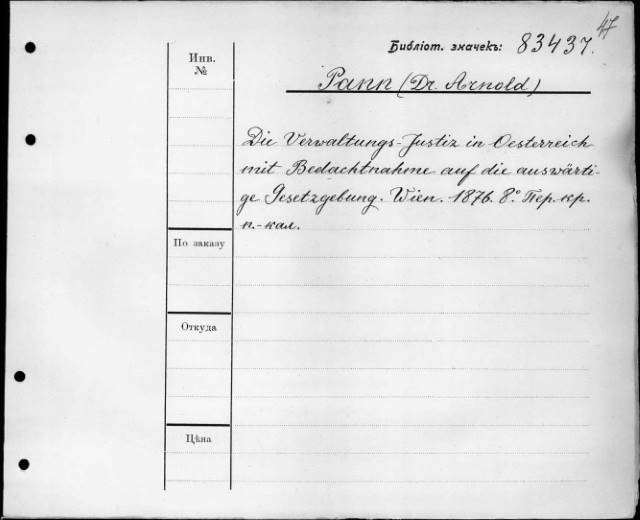 47
Библіот. значекъ: 83437.
Инв.
№
Pann (Dr. Arnold)
Die Verwaltungs-Justiz in Oesterreich
mit Bedachtnahme auf die auswärti-
ge Gesetzgebung. Wien. 1876. 8.° Пер. кр.
п.-кал.
По заказу
Откуда
Цѣна